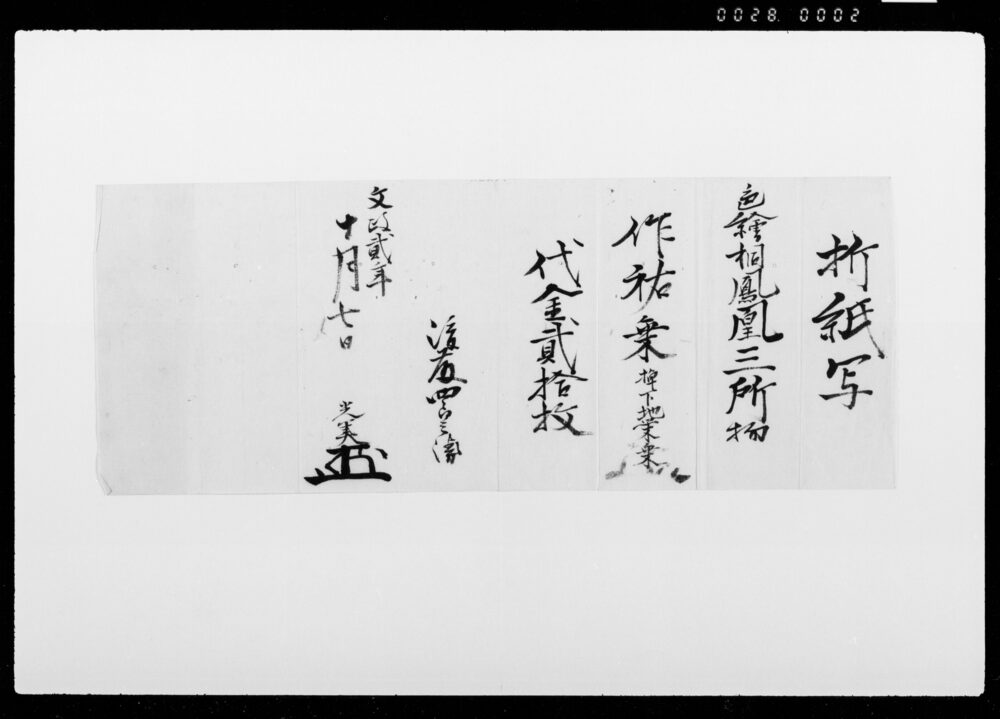 0028 0002
折紙写
色繪桐鳳凰三所物
作祐乗 棹下地栄乗
代金貳拾枚
後藤四郎兵衛
文政貳年
十月七日
光美